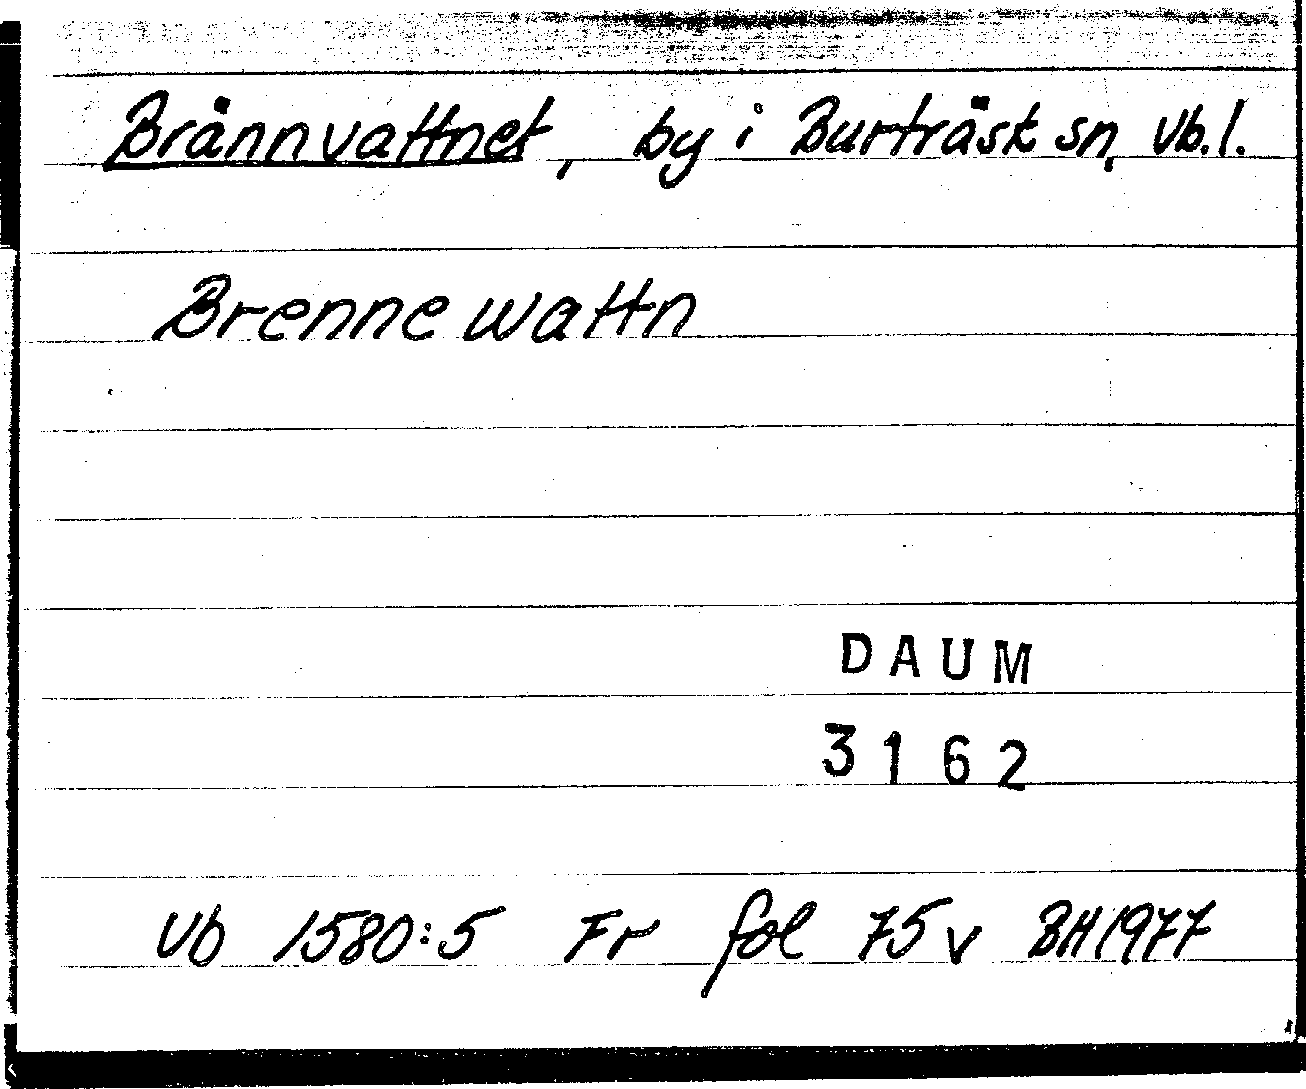 Brännvattnet, by i Burträsk sn, Vb. l.
Brennewattn
DAUM
3162
Vb 1580:5 Fr fol 75v BH 1977